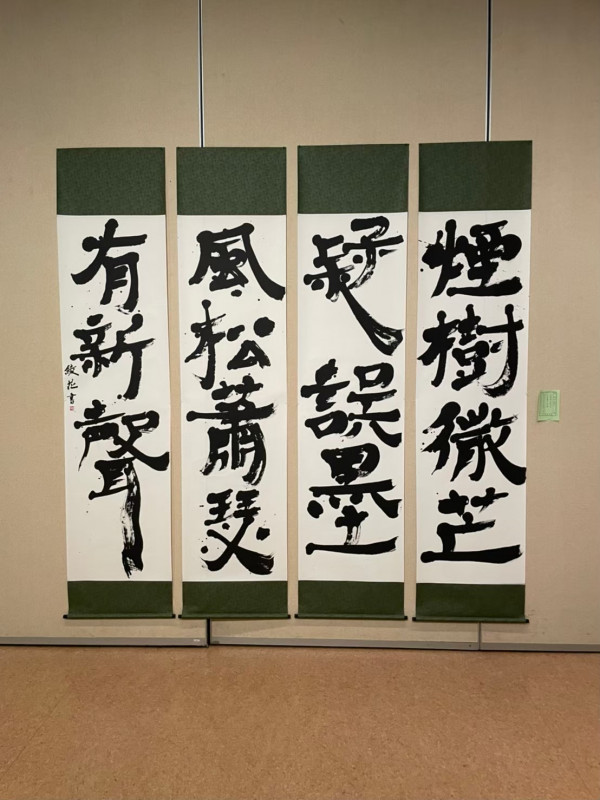 煙樹微芒
疑誤墨
風松蕭瑟
有新聲
綾花書